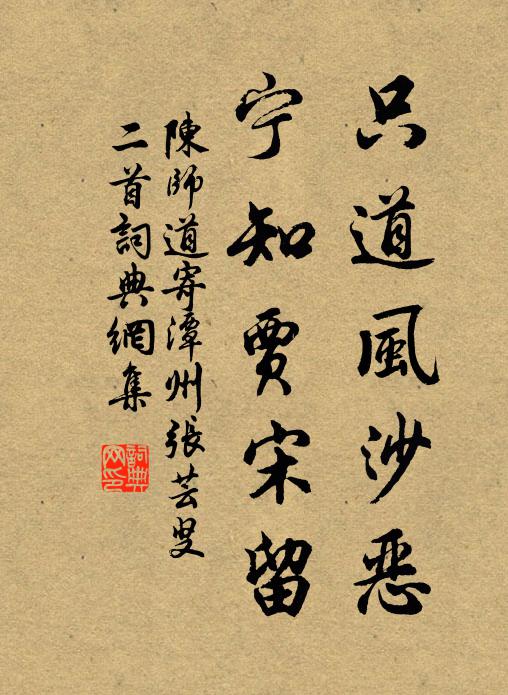 只道風沙恶
宁知賈宋留
陳師道寄潭州張芸叟
二首詞典網集
詞典
网印